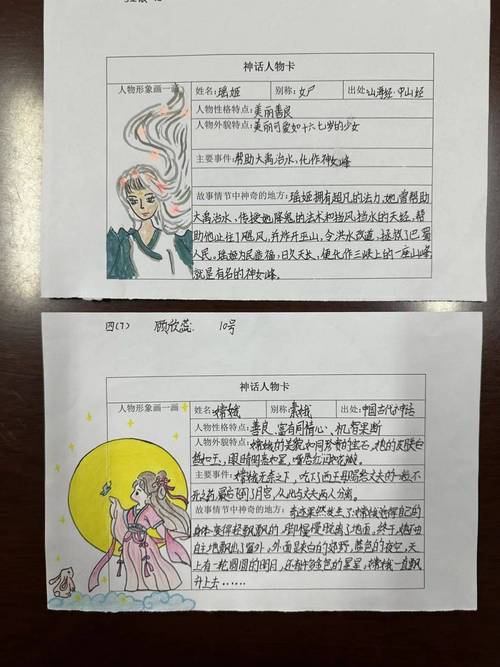 神话人物卡
人物形象画一画
姓名：瑶姬 别称：女尸 出处：山海经·中山经
人物性格特点：美丽善良
人物外貌特点：美丽可爱如十六七岁的少女
主要事件：帮助大禹治水，化作神女峰
故事情节中神奇的地方：瑶姬拥有超凡的法力，她曾帮助
大禹治水，传授她降鬼的法术和挡风挡水的天经，帮
助他止住了飓风，并炸开巫山，令洪水改道，拯救了巴蜀
人民。瑶姬为民造福，日久天长，便化作三峡上的一座山峰
就是有名的神女峰。
四(7) 顾欣蕊 10号
神话人物卡
人物形象画一画
姓名：嫦娥 别称：素娥 出处：中国古代神话
人物性格特点：善良、富有同情心、机智果断
人物外貌特点：嫦娥的美貌如同珍奇的宝石，她的皮肤白
皙如玉，眼睛明亮如星，嘴唇红润如花瓣。
主要事件：嫦娥无奈之下，吃下了西王母赐给丈夫的一般不
死之药，最后飞到了月宫，从此与丈夫两人分离。
故事情节中神奇的地方：奇迹果然发生了：嫦娥觉得自己的
身体变得轻飘飘的，脚慢慢脱离了地面。终于，她不由
自主地飘出了窗外，外面是灰白的郊野，蓝色的夜空，天
上有一轮圆圆的明月，还有许多金色的星星，嫦娥一直飘
升上去……